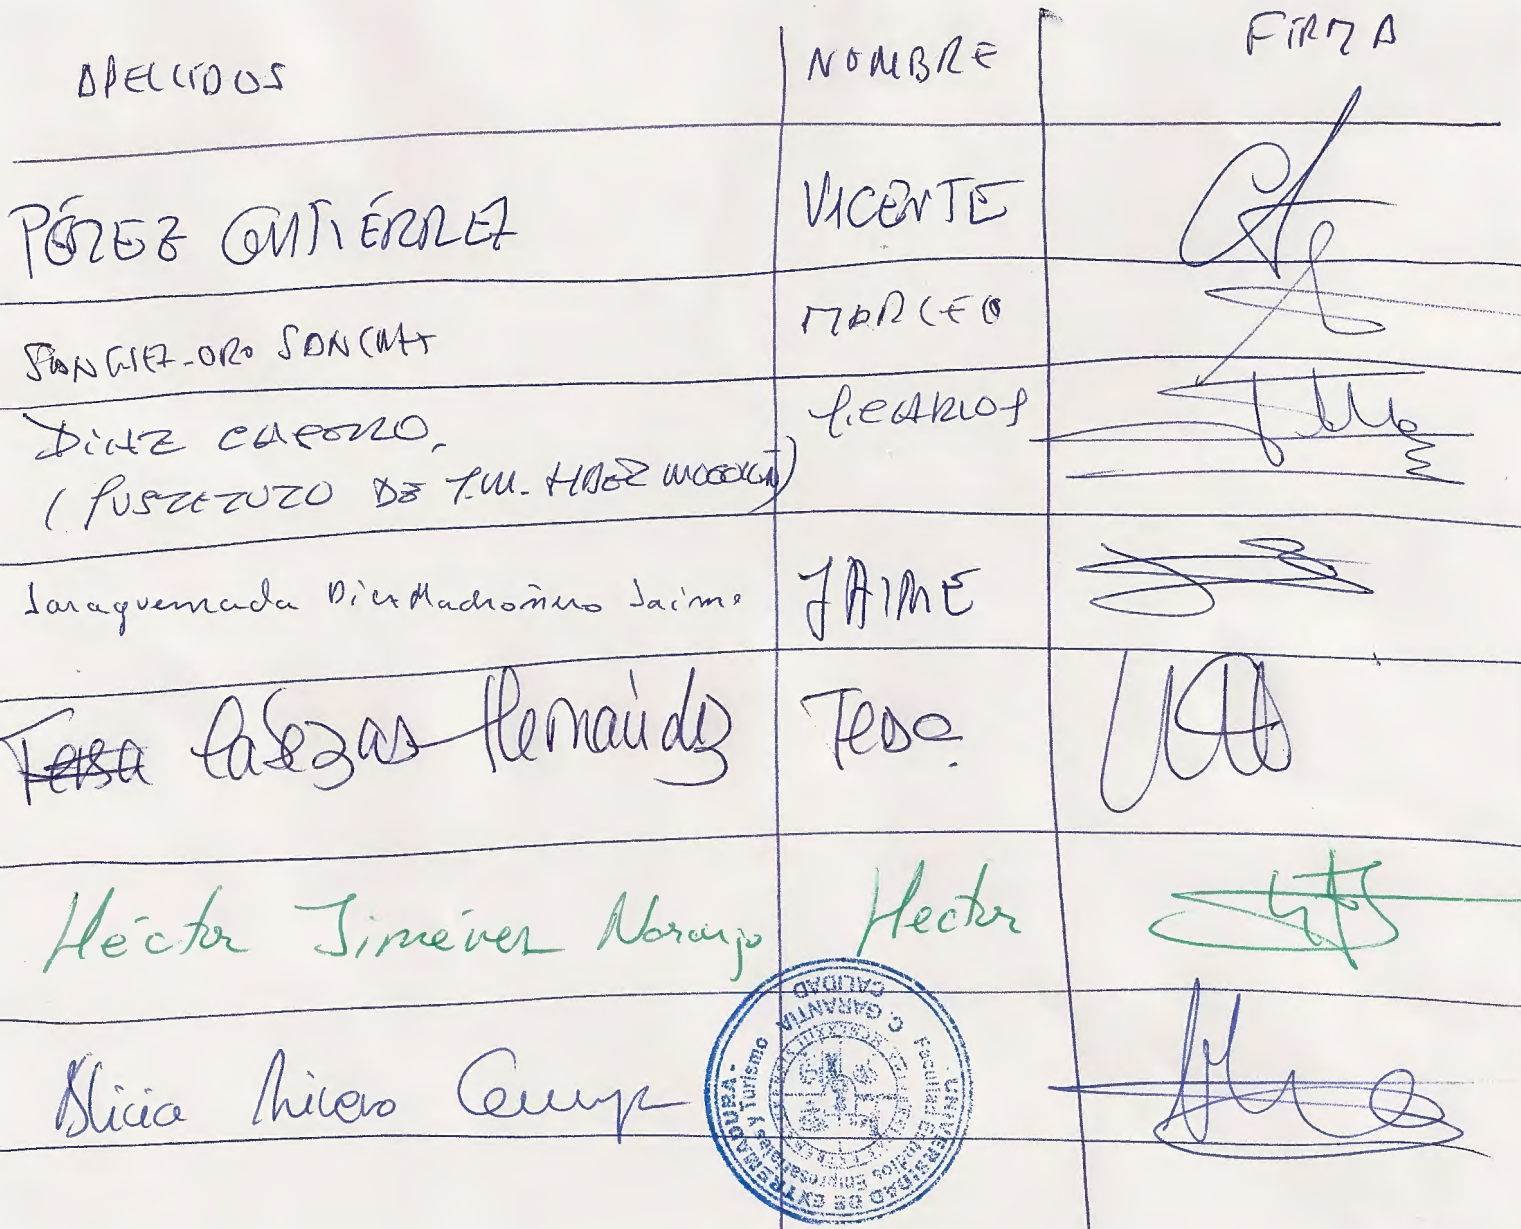 APELLIDOS NOMBRE FIRMA
PÉREZ GUTIÉRREZ VICENTE
SANCHEZ-ORO SANCHEZ MARCELO
DIAZ CASERO, J.CARLOS
( SUSTITUTO DE
Jaraquemada Diez Madroñero Jaime JAIME
Teresa Cabezas Hernández Tesa
Héctor Jiménez Naranjo Hector
Alicia
UNIVERSIDAD DE EXTREMADURA -
Facultad Estudios Empresariales y Turismo
C. GARANTIA
CALIDAD